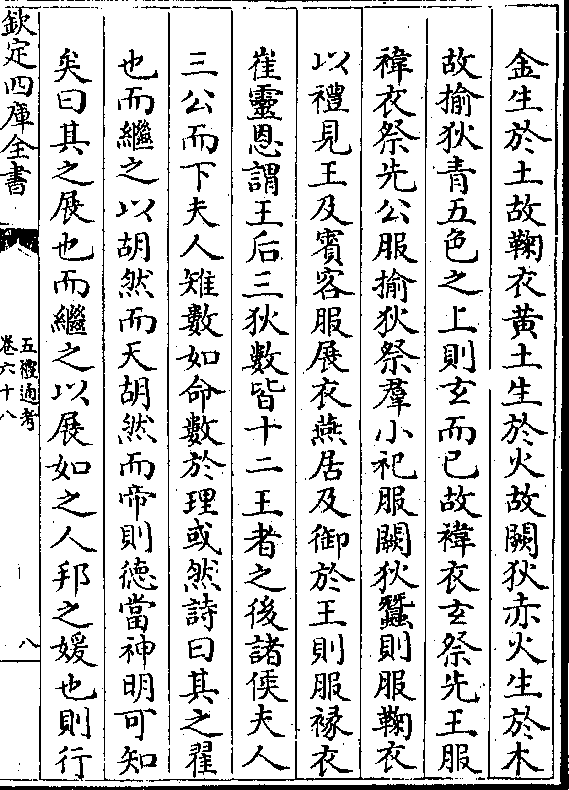 金生於土故鞠衣黃土生於火故闕狄赤火生於木
故揄狄青五色之上則玄而已故褘衣玄祭先王服
褘衣祭先公服揄狄祭羣小祀服闕狄蠶則服鞠衣
以禮見王及賓客服展衣燕居及御於王則服褖衣
崔靈恩謂王后三狄數皆十二王者之後諸侯夫人
三公而下夫人雉數如命數於理或然詩曰其之翟
也而繼之以胡然而天胡然而帝則德當神明可知
矣曰其之展也而繼之以展如之人邦之媛也則行
欽定四庫全書
五禮通考
卷六十八
八